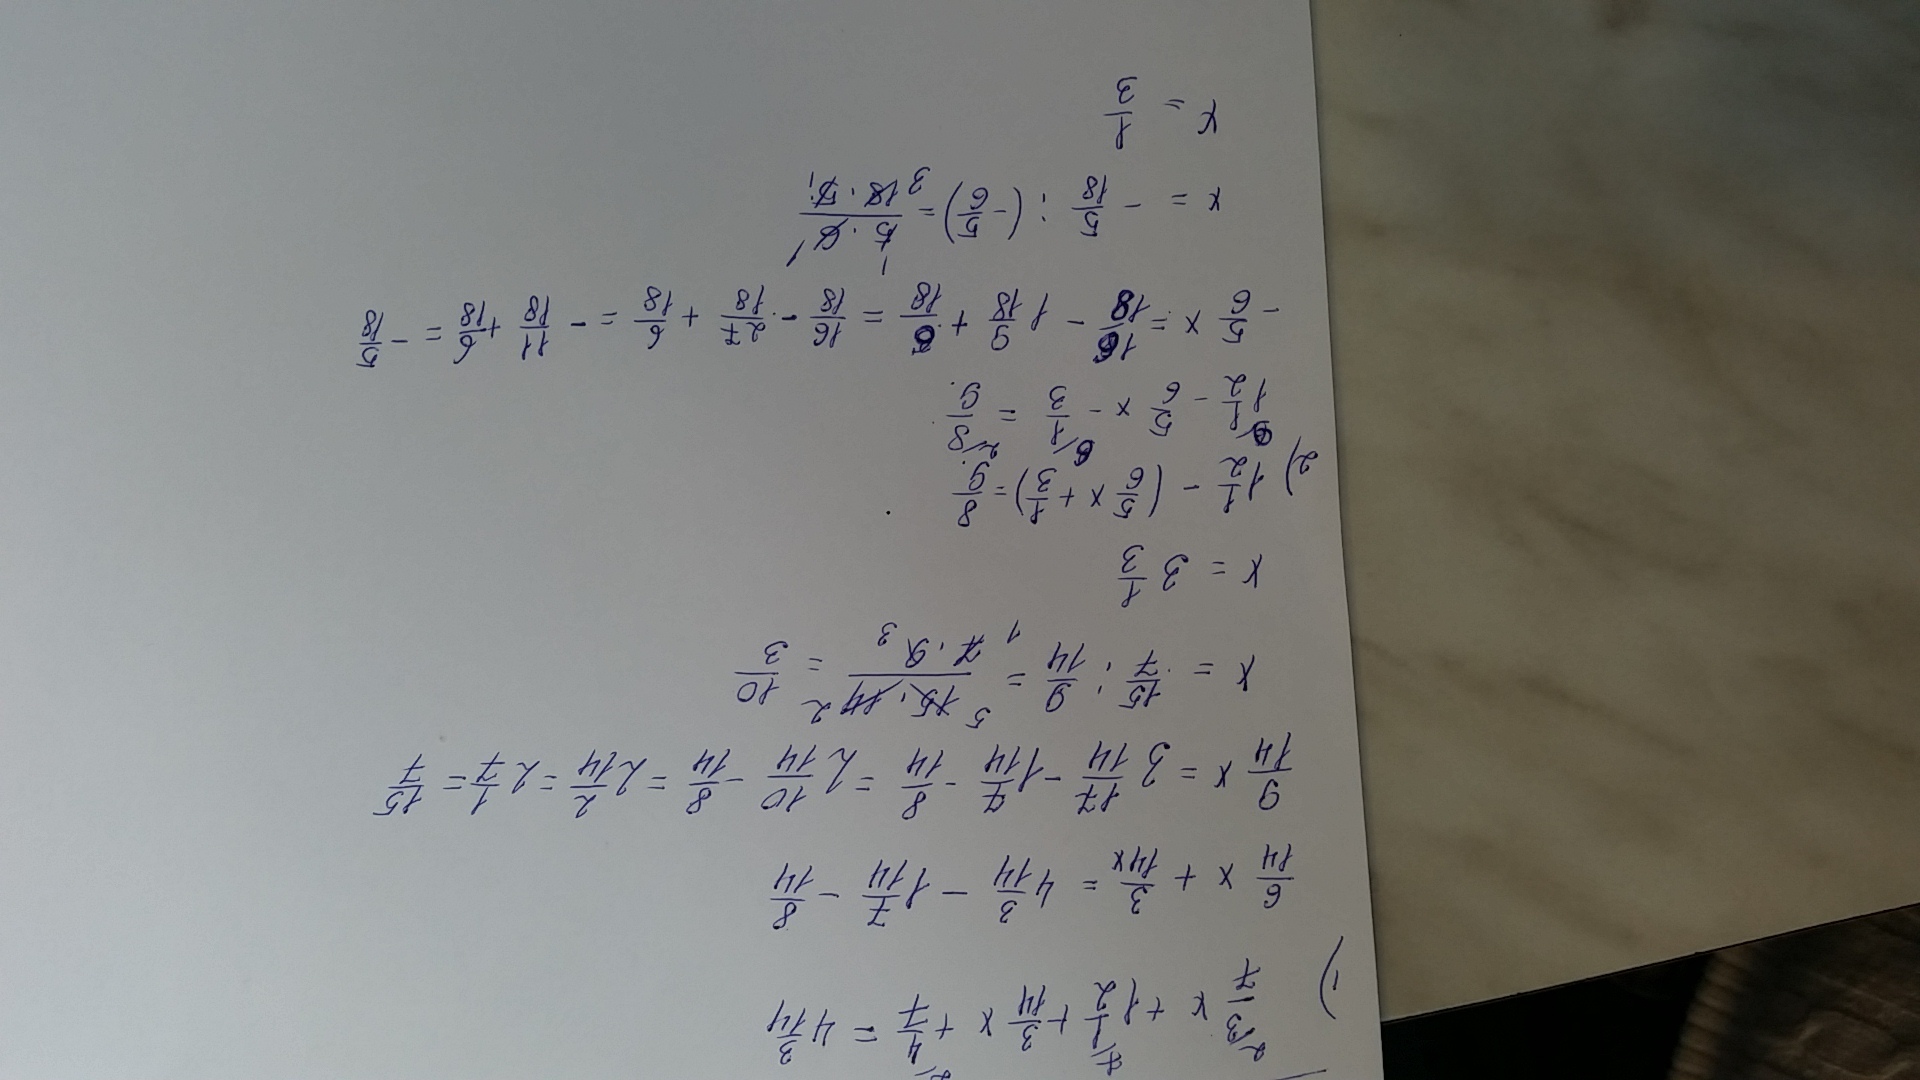 1) 3/7 x + 1 1/2 + 3/14 x + 4/7 = 4 3/14
6/14 x + 3/14 x = 4 3/14 - 1 7/14 - 8/14
9/14 x = 3 17/14 - 1 7/14 - 8/14 = 2 10/14 - 8/14 = 2 2/14 = 2 1/7 = 15/7
x = 15/7 : 9/14 = 15 · 14 / 7 · 9 = 10/3
x = 3 1/3
2) 1 1/2 - (5/6 x + 1/3) = 8/9
1 1/2 - 5/6 x - 1/3 = 8/9
- 5/6 x = 16/18 - 1 9/18 + 6/18 = 16/18 - 27/18 + 6/18 = - 11/18 + 6/18 = - 5/18
x = - 5/18 : (- 5/6) = 5 · 6 / 18 · 5
x = 1/3